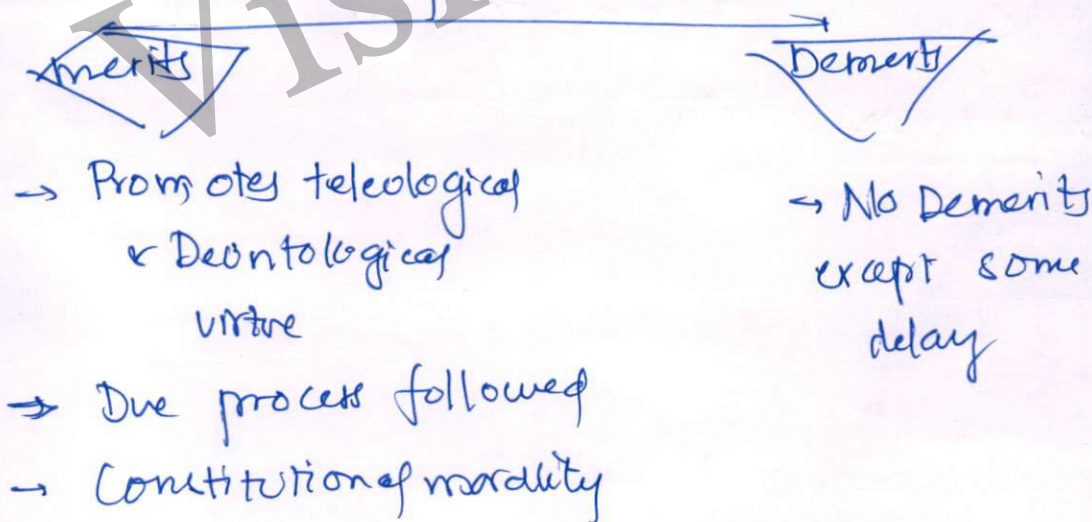 merits
Demerits
→ Promotes teleological
& Deontological
virtue
→ Due process followed
→ Constitutional morality
→ No Demerits
except some
delay